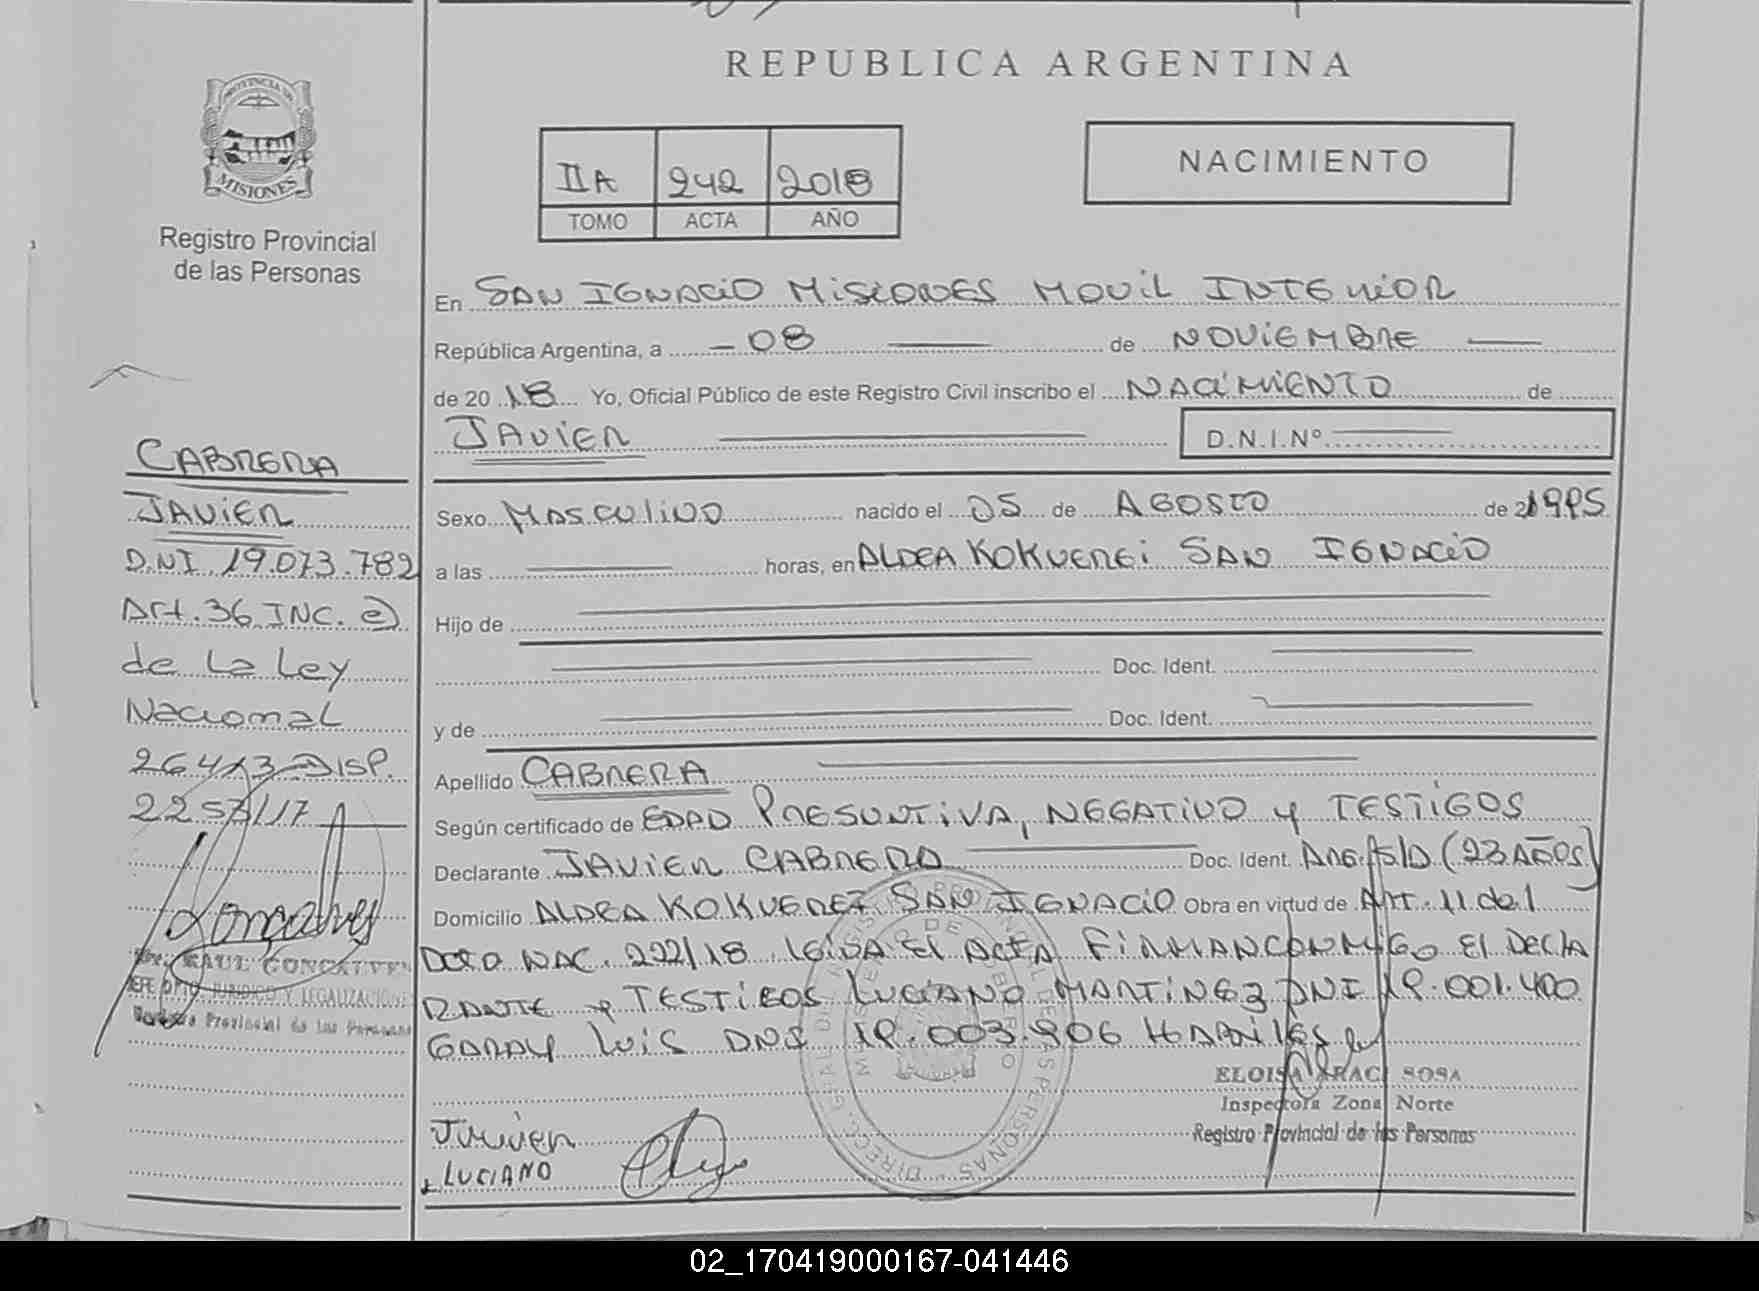 PROVINCIA DE
MISIONES
Registro Provincial
de las Personas
CABRERA
JAVIER
D.N.I 19.073.782
Art. 36 INC. e)
de La Ley
Nacional
26413 DISP.
2257/17
Goncalves
RAUL GONCALVES
JEFE DPTO. JURIDICO Y LEGALIZACIONES
Registro Provincial de las Personas
REPUBLICA ARGENTINA
IIA 242 2018
TOMO ACTA AÑO
NACIMIENTO
En SAN IGNACIO MISIONES MOVIL INTERIOR
República Argentina, a 08 de NOVIEMBRE
de 2018 Yo, Oficial Público de este Registro Civil inscribo el NACIMIENTO de
JAVIER D.N.I.Nº
Sexo MASCULINO nacido el 05 de AGOSTO de 1995
a las horas, en ALDEA KOKUEREI SAN IGNACIO
Hijo de
Doc. Ident.
y de Doc. Ident.
Apellido CABRERA
Según certificado de EDAD PRESUNTIVA, NEGATIVO y TESTIGOS
Declarante JAVIER CABRERA Doc. Ident. ARG. S/D (23 AÑOS)
Domicilio ALDEA KOKUEREI SAN IGNACIO Obra en virtud de Art. 11 del
DCTO NAC. 222/18 LEIDA El ACTA FIRMAN CONMIGO El DECLA
RANTE y TESTIGOS LUCIANO MARTINEZ DNI 19.001.400
GARAY LUIS DNI 19.003.906 HABILES
ELOISA ARACI SOSA
Inspectora Zona Norte
Registro Provincial de las Personas
JAVIER
LUCIANO
02_170419000167-041446